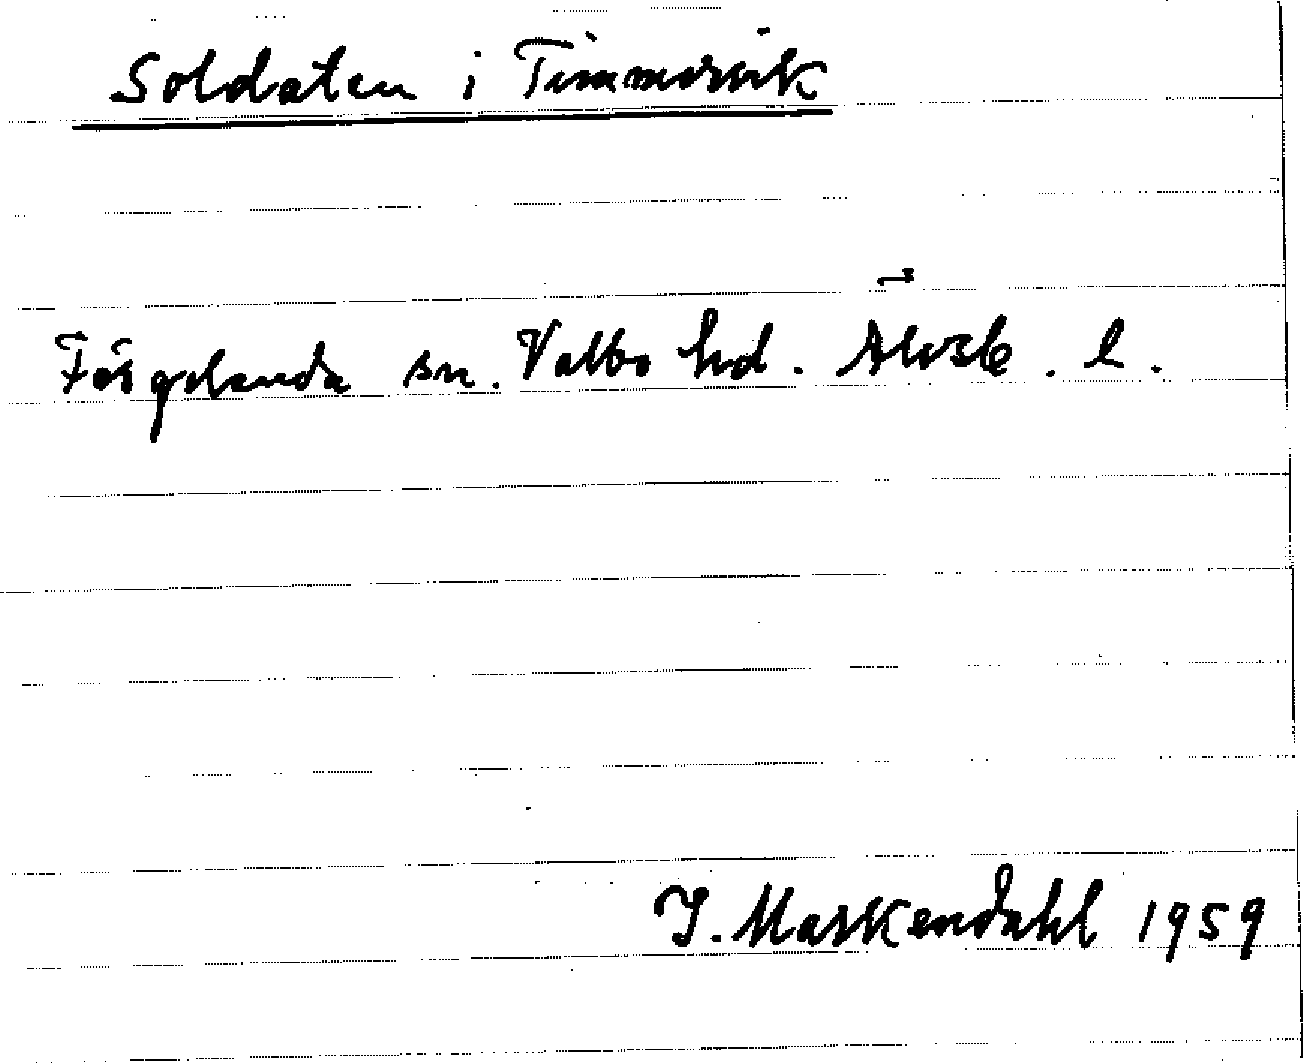 Soldaten i Timmervik
Färgelanda sn. Valbo hd. Älvsb. l.
I. Maskendahl 1959